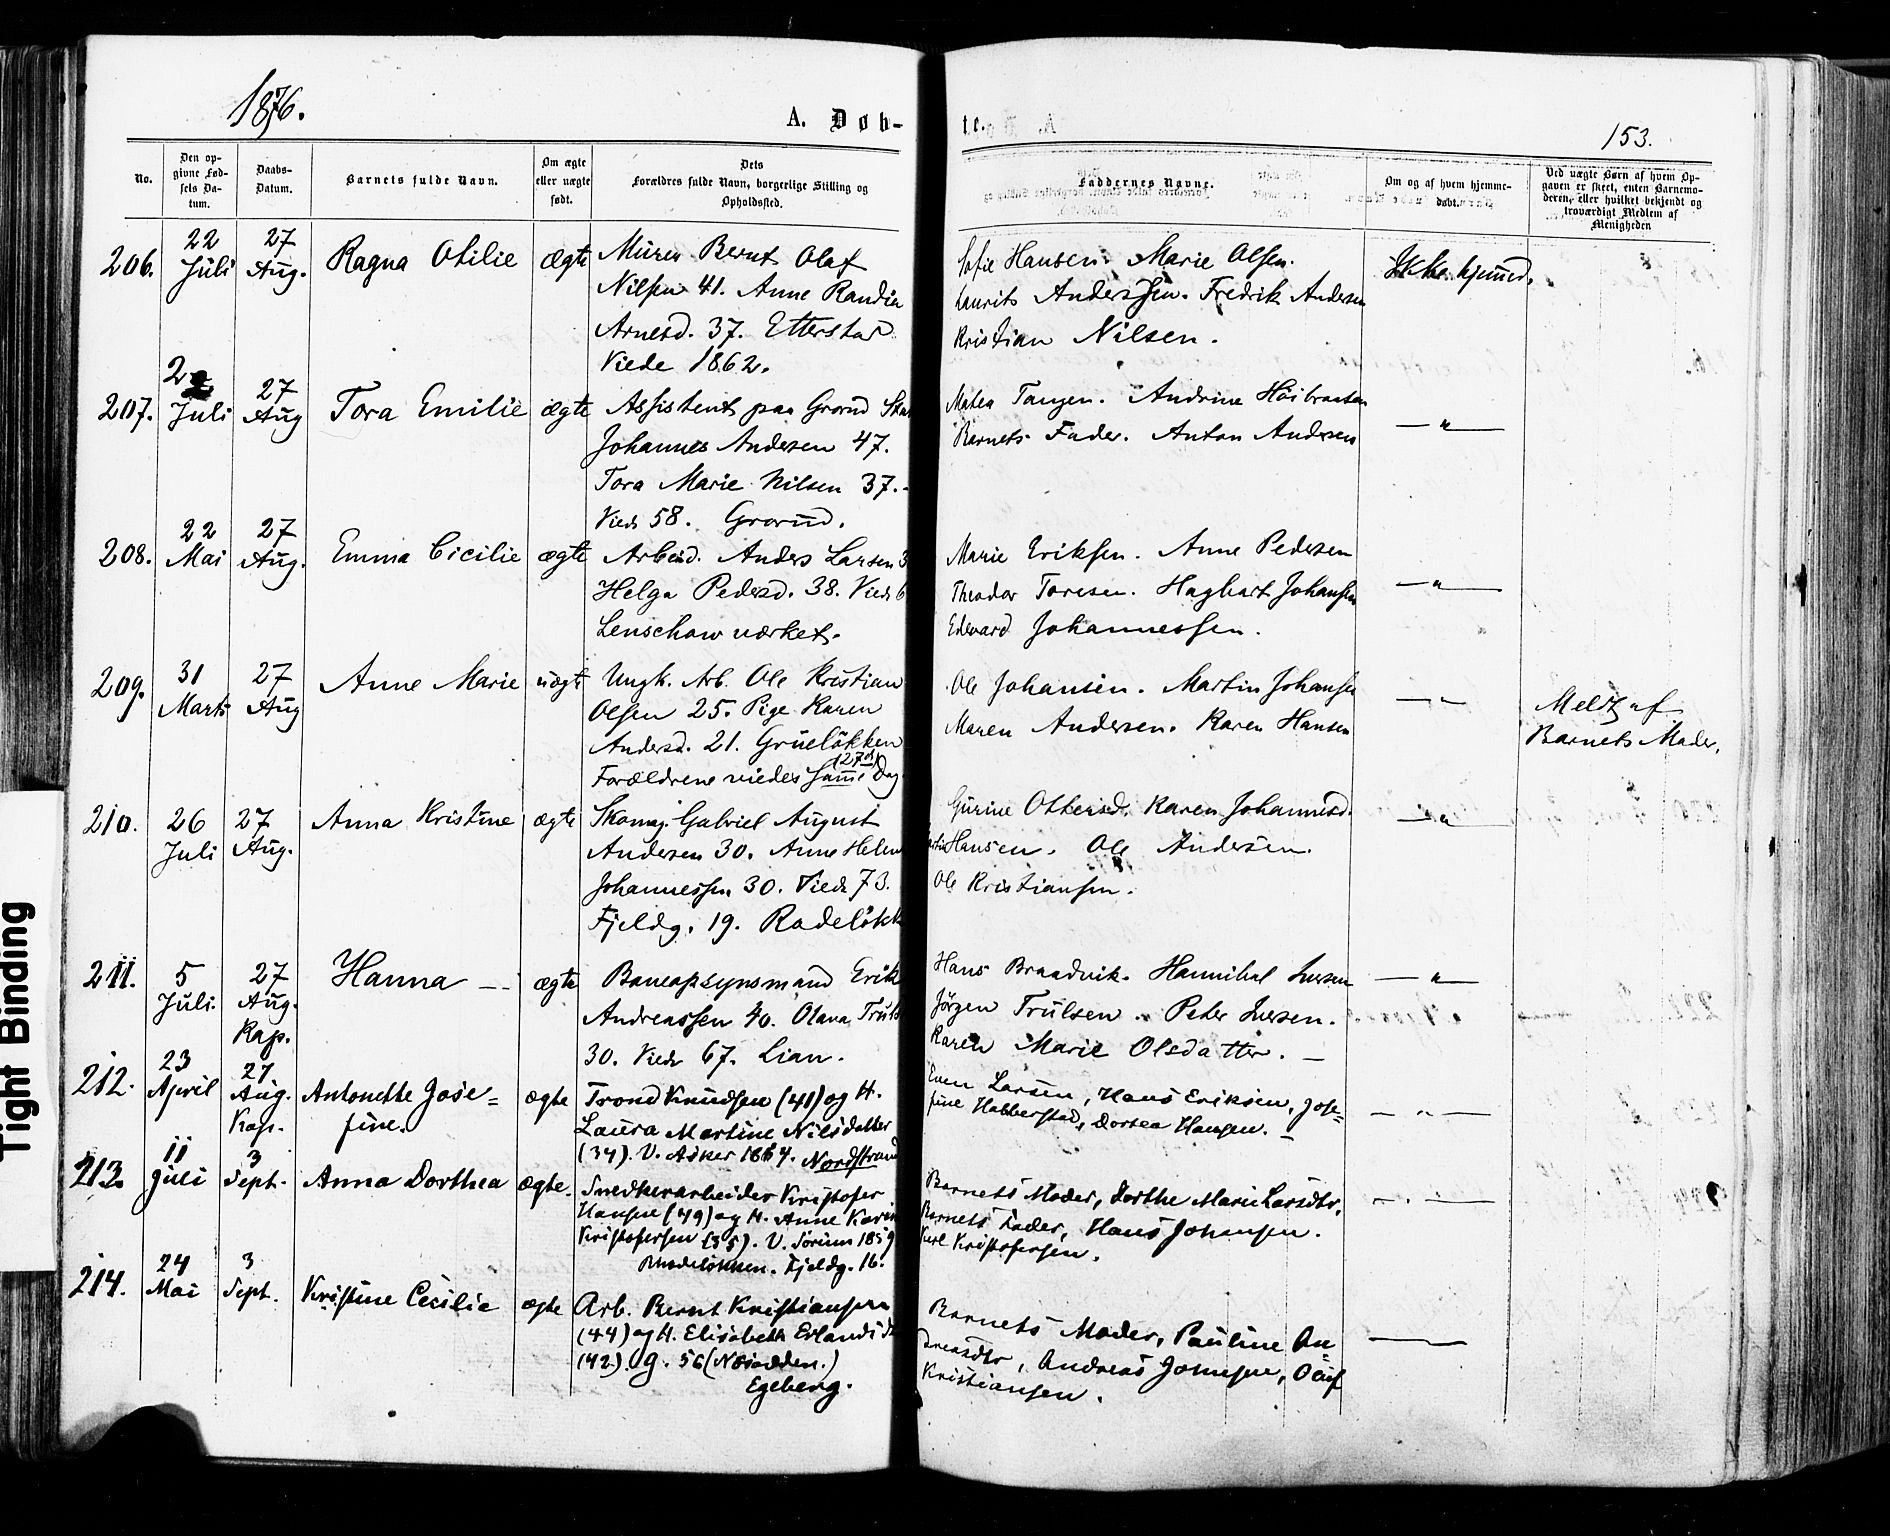 1876.
A. Døb-
te.
153.
No.
Den op-
givne Fød-
sels Da-
tum.
Daabs-
Datum.
Barnets fulde Navn.
Om ægte
eller uægte
født.
Dets
Forældres fulde Navn, borgerlige Stilling og
Opholdssted.
Faddernes Navne.
Om og af hvem hjemme-
døbt.
Ved uægte Børn af hvem Op-
gaven er skeet, enten Barnemo-
deren, eller hvilket bekjendt og
troværdigt Medlem af
Menigheden
206. 22 Juli 27 Aug. Ragna Otilie ægte
Murer Bernt Olaf
Nilsen 41. Anne Randia
Arnesd. 37. Etterstad
Viede 1862.
Sofie Hansen. Marie Olsen.
Laurits Anderssen. Fredrik Andersen
Kristian Nilsen.
Ikke hjemmed.
207. 2 Juli 27 Aug Tora Emilie ægte
Assistent paa Grorud
Johannes Andersen 47.
Tora Marie Nilsen 37.
Vied 58. Grorud.
Matea Tangen. Andrine Höibraaten
Barnets Fader. Anton Andersen
— " —
208. 22 Mai 27 Aug. Emma Cicilie ægte
Arbeid. Anders Larsen 3
Helga Pedersd. 38. Vied 6
Lenschow værket.
Marie Eriksen. Anne Pedersen
Theodor Toresen. Hagbart Johansen
Edevard Johannessen.
— " —
209. 31 Marts 27 Aug Anne Marie uægte
Ungk. Arb. Ole Kristian
Olsen 25. Pige Karen
Andersd. 21. Grueløkken
Forældrene viedes samme (27de) Dag
Ole Johansen. Martin Johansen
Maren Andersen. Karen Hansen
— " —
Meldt af
Barnets Moder.
210. 26 Juli 27 Aug. Anna Kristine ægte
Skomag. Gabriel August
Andersen 30. Anne Helene
Johannessen 30. Viede 73.
Fjeldg. 19. Radeløkk
Gurine Ottersd. Karen Johannesd.
Hansen. Ole Andersen.
Ole Kristiansen.
— " —
211. 5 Juli. 27 Aug. Kap. Hanna — ægte
Baneopsynsmand Erik
Andreassen 40. Olava Truls
30. Viede 67. Lian.
Hans Braadvik. Hannibal Iversen
Jörgen Trulsen. Peter Iversen.
Karen Marie Olsdatter. —
— " —
212. 23 April 27 Aug. Kap. Antonette Jose=
fine. ægte
Trond Knudsen (41) og H.
Laura Martine Nilsdatter
(34). V. Asker 1864. Nordstrand
Even Larsen, Hans Eriksen, Jose=
fine Habberstad, Dortea Hansen. —
— " —
213. 11 Juli 3 Sept. Anna Dorthea ægte.
Snedkerarbeider Kristofer
Hansen (49) og H. Anne Karin
Kristofersen (35). V. Sørum 1859
Rhodeløkken. Fjeldg. 16.
Barnets Moder, Dorthe Marie Larsdtr,
Barnets Fader, Hans Johansen.
Karl Kristofersen.
— " —
214. 24 Mai 3 Sept. Kristine Cecilie ægte
Arb. Bernt Kristiansen
(44) og H. Elisabeth Erlandsd
(42). G. 56 (Næsodden.)
Egeberg.
Barnets Moder, Pauline An=
dreasdtr, Andreas Johnsen, Oluf
Kristiansen.
Tight Binding